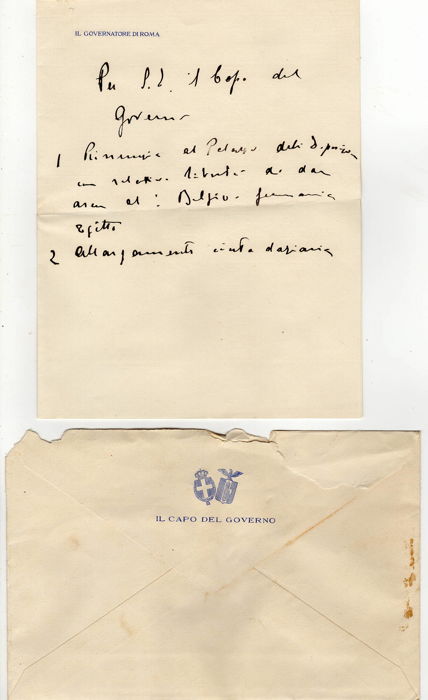 IL GOVERNATORE DI ROMA
Per S. E. il Capo del
Governo
1 Rinunzia al Palazzo
con relativa libertà di dar
area al: Belgio Germania
Egitto
2 Allargamento cinta daziaria
IL CAPO DEL GOVERNO